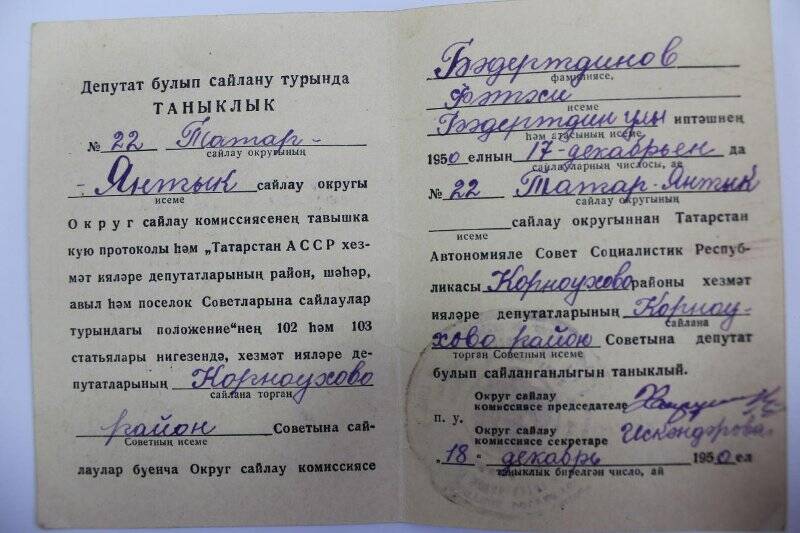 Депутат булып сайлану турында
ТАНЫКЛЫК
№ 22 Татар-
сайлау округының
-Янтык сайлау округы
исеме
Округ сайлау комиссиясенең тавышка
кую протоколы һәм „Татарстан АССР хез-
мәт ияләре депутатларының район, шәһәр,
авыл һәм поселок Советларына сайлаулар
турындагы положение“нең 102 һәм 103
статьялары нигезендә, хезмәт ияләре де-
путатларының Корноухово
сайлана торган
район Советына сай-
Советның исеме
лаулар буенча Округ сайлау комиссиясе
Бәдертдинов
фамилиясе,
Фәтхи
исеме
Бәдертдин улы иптәшнең
һәм атасының исеме
1950 елның 17-декабрьен да
сайлауларның числосы, ае
№ 22 Татар-Янтык
сайлау округының
сайлау округыннан Татарстан
исеме
Автономияле Совет Социалистик Респуб-
ликасы Корноухово районы хезмәт
ияләре депутатларының Корноу-
сайлана
хово район Советына депутат
торган Советның исеме
булып сайланганлыгын таныклый.
Округ сайлау
комиссиясе председателе
п. у.
Округ сайлау
комиссиясе секретаре Искәндәрова
„18“ декабрь 1950 ел
таныклык бирелгән число, ай